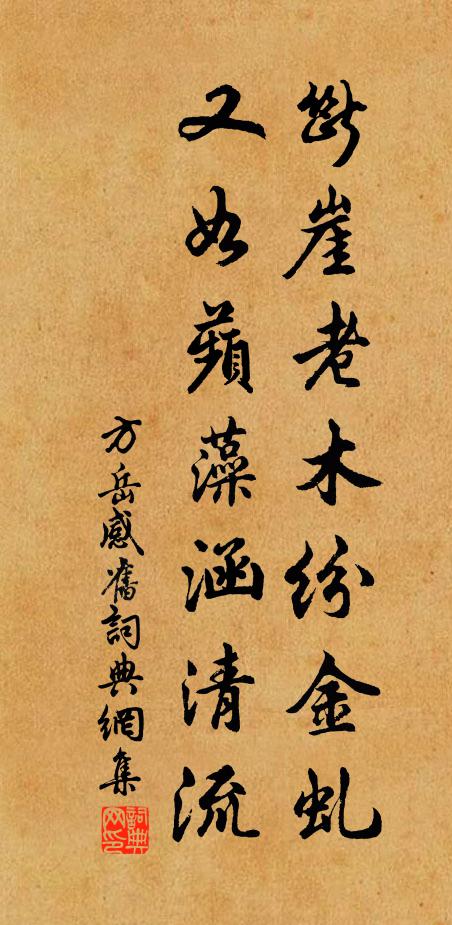 斷崖老木紛金虬
又如蘋藻涵清流
方岳感舊詞典網集
詞典網印